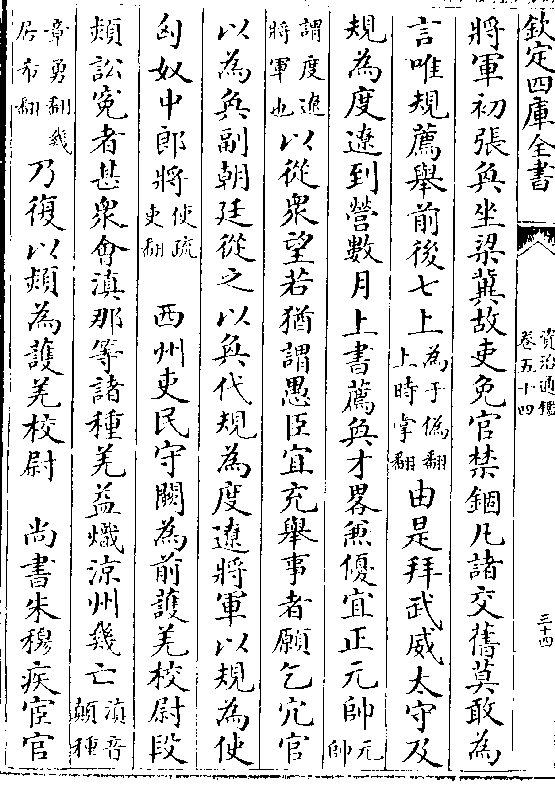 欽定四庫全書
資治通鑑
卷五十四
三十四
將軍初張奐坐梁冀故吏免官禁錮凡諸交舊莫敢為
言唯規薦舉前後七上為于偽翻上時掌翻由是拜武威太守及
規為度遼到營數月上書薦奐才畧兼優宜正元帥元帥
謂度遼將軍也以從衆望若猶謂愚臣宜充舉事者願乞冗官
以為奐副朝廷從之以奐代規為度遼將軍以規為使
匈奴中郎將使疏吏翻 西州吏民守闕為前護羌校尉段
熲訟寃者甚衆會滇那等諸種羌益熾涼州幾亡滇音顛種
章勇翻幾居希翻乃復以熲為護羌校尉 尚書朱穆疾宦官